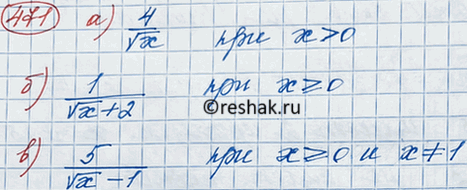 471 а) 4/√x при x>0
б) 1/(√x+2) при x≥0
©reshak.ru
в) 5/(√x-1) при x≥0 и x≠1